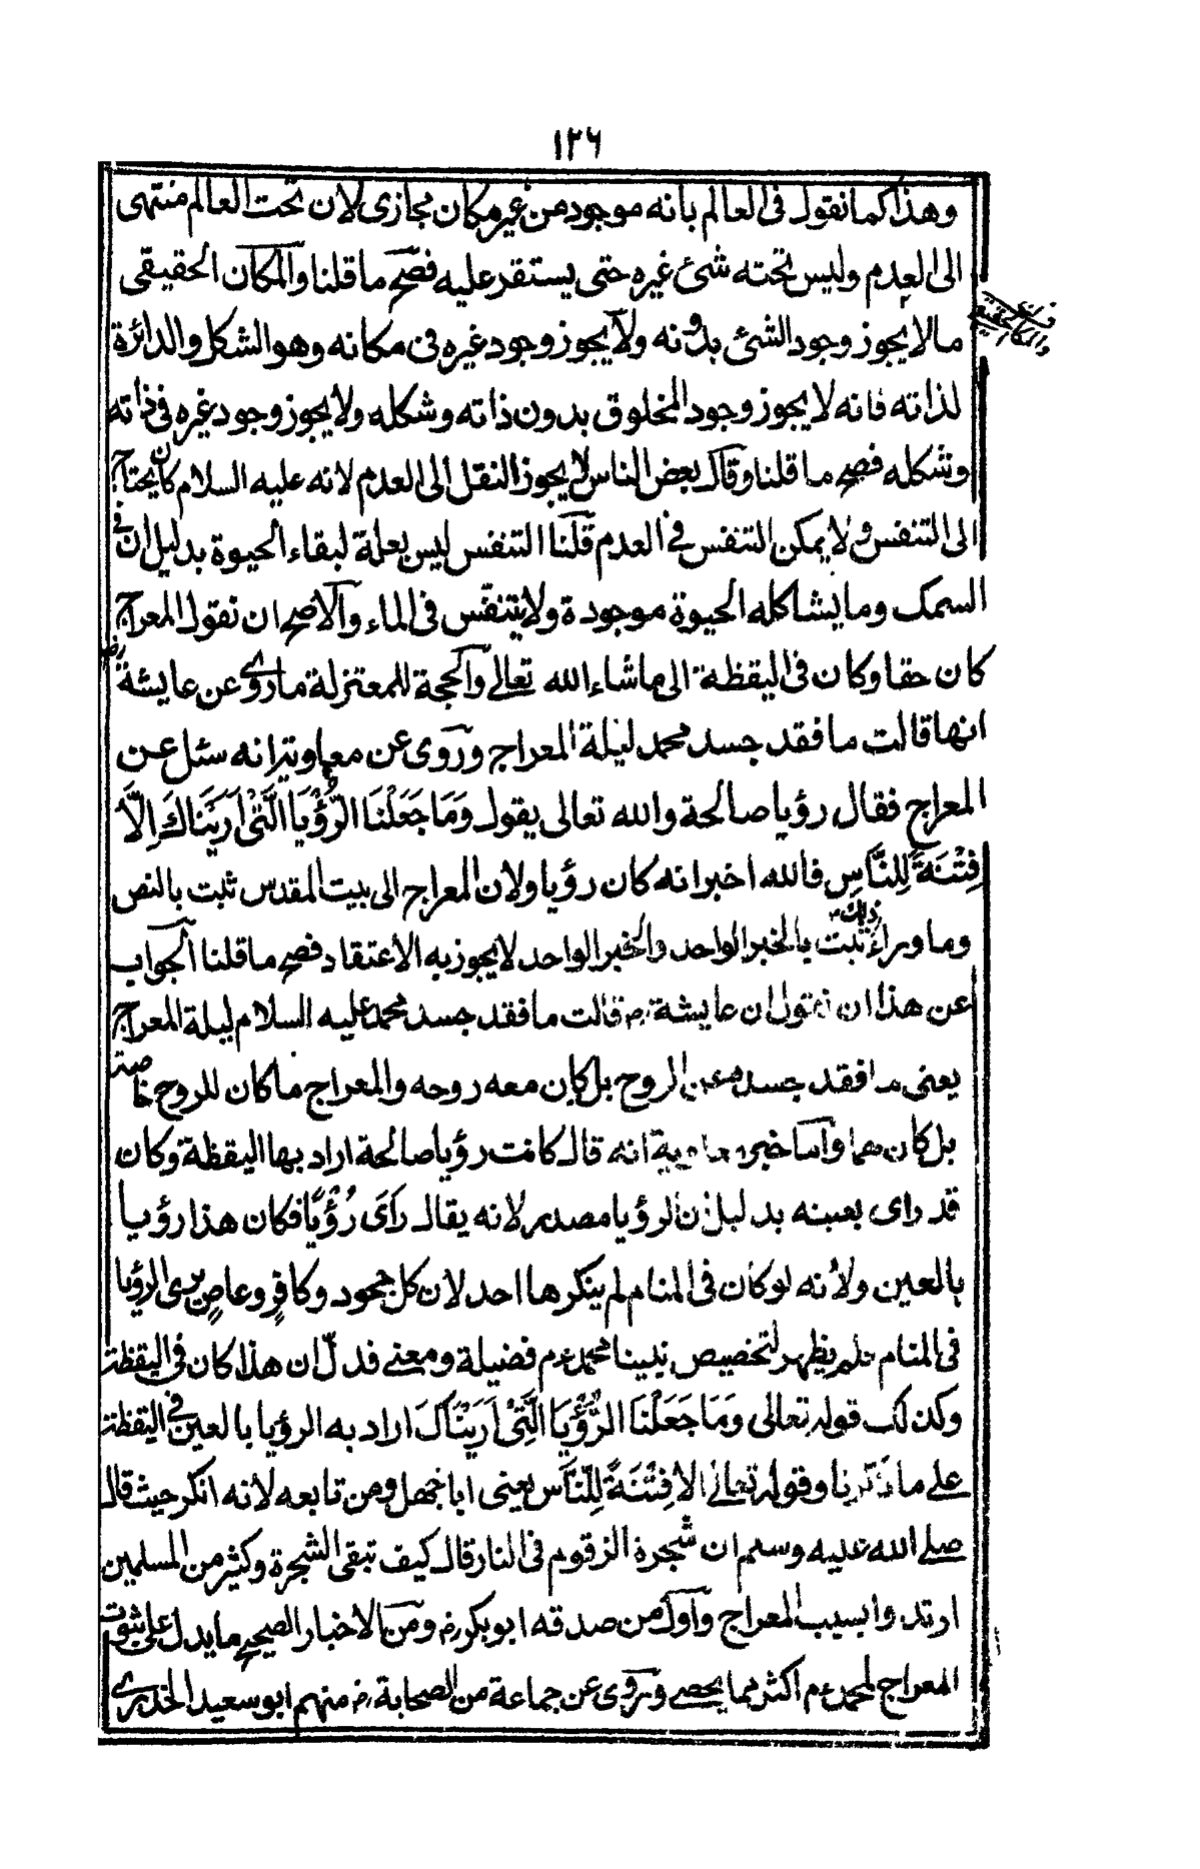 ١٢٦
وهذا كما نقول فى العالم بانه موجود من غير مكان مجازى لان تحت العالم منتهى
الى العدم وليس تحته شئ غيره حتى يستقر عليه فصح ما قلنا والمكان الحقيقى
ما لا يجوز وجود الشئ بدونه ولا يجوز وجود غيره فى مكانه وهو الشكل والدائرة
لذاته فانه لا يجوز وجود المخلوق بدون ذاته وشكله ولا يجوز وجود غيره فى ذاته
وشكله فصح ما قلنا وقال بعض الناس لا يجوز النقل الى العدم لانه عليه السلام كان يحتاج
الى التنفس ولا يمكن التنفس فى العدم قلنا التنفس ليس بعلة لبقاء الحيوة بدليل ان فى
السمك وما يشاكله الحيوة موجودة ولا يتنفس فى الماء والاصح ان نقول المعراج
كان حقا وكان فى اليقظة الى ما شاء الله تعالى والحجة للمعتزلة ما روى عن عايشة رض
انها قالت ما فقد جسد محمد ليلة المعراج وروى عن معاوية انه سئل عن
المعراج فقال رؤيا صالحة والله تعالى يقول وَمَا جَعَلْنَا الرُّؤْيَا الَّتِىْ اَرَيْنَاكَ اِلَّا
فِتْنَةً لِلنَّاسِ فالله اخبر انه كان رؤيا ولان المعراج الى بيت المقدس ثبت بالنص
وما وراء ذلك ثبت بالخبر الواحد والخبر الواحد لا يجوز به الاعتقاد فصح ما قلنا الجواب
عن هذا ان نقول ان عايشة رض قالت ما فقد جسد محمد عليه السلام ليلة المعراج
يعنى ما فقد جسده عن الروح بل كان معه روحه والمعراج ما كان للروح خاصة
بل كان هما واما خبر معاوية انه قال كانت رؤيا صالحة اراد بها اليقظة وكان
قد راى بعينه بدليل ان الرؤيا مصدر لانه يقال رَاَىَ رُؤْيًا فكان هذا رؤيا
بالعين ولانه لو كان فى المنام لم ينكرها احد لان كل جحود وكافرٍ وعاصٍ يرى الرؤيا
فى المنام فلم يظهر لتخصيص نبينا محمد عم فضيلة ومعنى فدلّ ان هذا كان فى اليقظة
وكذلك قوله تعالى وَمَا جَعَلْنَا الرُّؤْيَا الَّتِىْ اَرَيْنَاكَ اراد به الرؤيا بالعين فى اليقظة
على ما ذكرنا وقوله تعالى الا فِتْنَةً لِلنَّاس يعنى ابا جهل ومن تابعه لانه انكر حيث قال
صلى الله عليه وسلم ان شجرة الزقوم فى النار قال كيف تبقى الشجرة وكثير من المسلمين
ارتدوا بسبب المعراج واول من صدقه ابو بكر رض ومن الاخبار الصحيح ما يدل على ثبوت
المعراج لمحمد عم اكثر مما يحصى وروى عن جماعة من الصحابة رض منهم ابو سعيد الخدرى